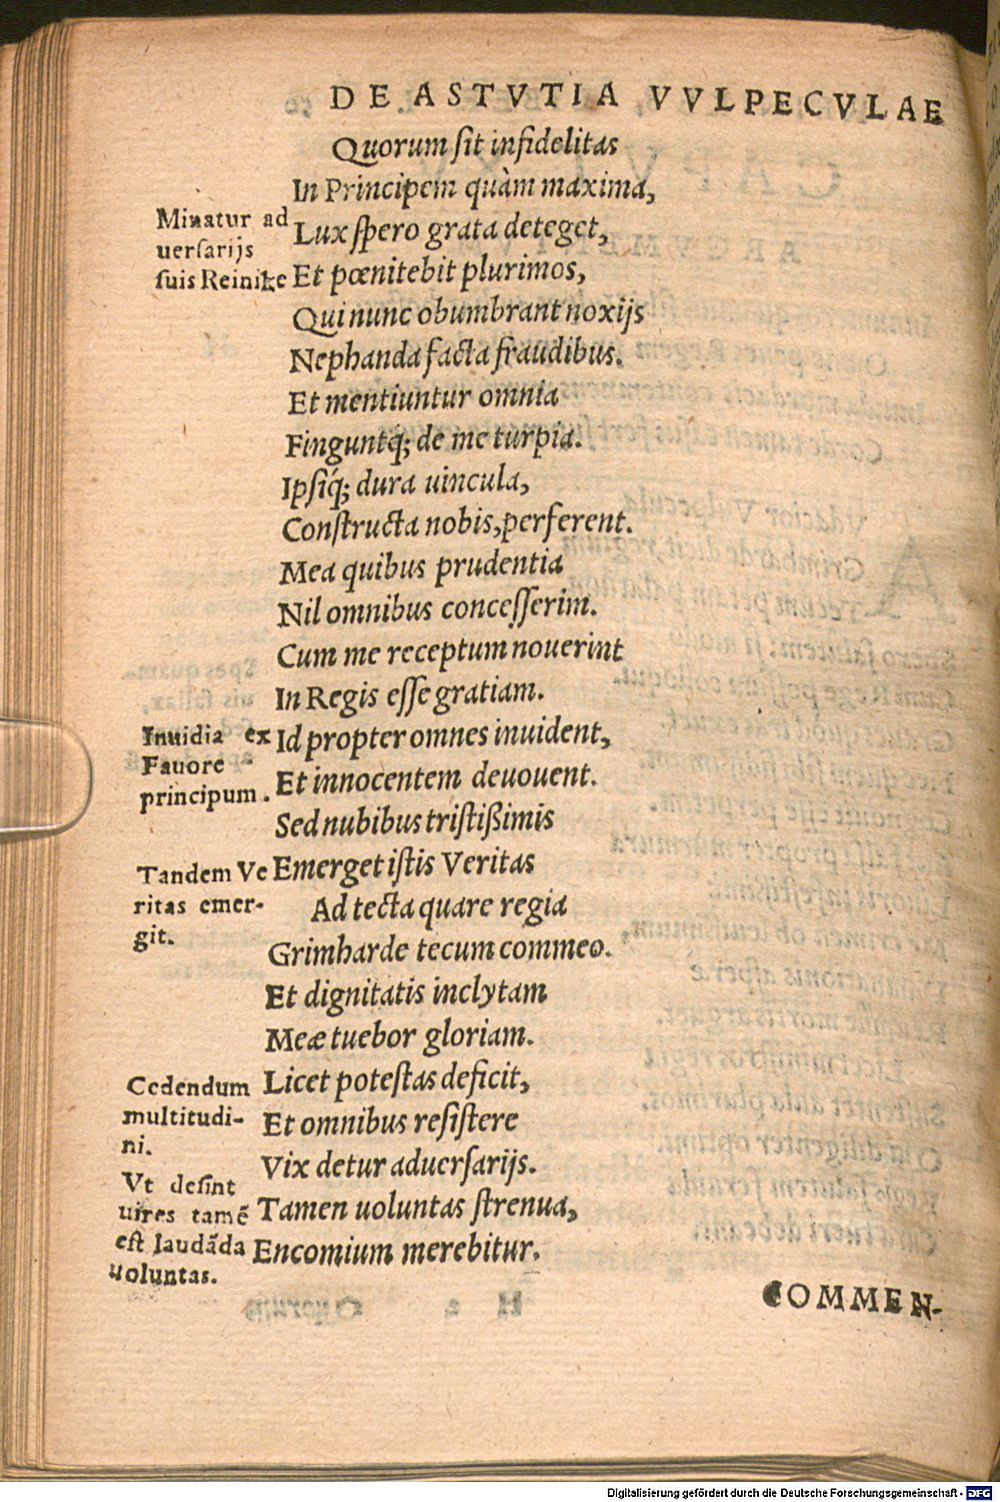 DE ASTVTIA VVLPECVLAE
Quorum ſit infidelitas
In Principem quàm maxima,
Minatur ad
uerſarijs
ſuis Reinike
Lux ſpero grata deteget,
Et pœnitebit plurimos,
Qui nunc obumbrant noxijs
Nephanda facta fraudibus.
Et mentiuntur omnia
Finguntq́; de me turpia.
Ipſiq́; dura uincula,
Conſtructa nobis, perferent.
Mea quibus prudentia
Nil omnibus conceſſerim.
Cum me receptum nouerint
In Regis eſſe gratiam.
Inuidia ex
Fauore
principum.
Id propter omnes inuident,
Et innocentem deuouent.
Sed nubibus triſtißimis
Tandem Ve
ritas emer-
git.
Emerget iſtis Veritas
Ad tecta quare regia
Grimharde tecum commeo.
Et dignitatis inclytam
Meæ tuebor gloriam.
Cedendum
multitudi-
ni.
Licet poteſtas deficit,
Et omnibus reſiſtere
Vix detur aduerſarijs.
Vt deſint
uires tamē
eſt laudāda
uoluntas.
Tamen uoluntas ſtrenua,
Encomium merebitur.
COMMEN-
Digitalisierung gefördert durch die Deutsche Forschungsgemeinschaft - DFG